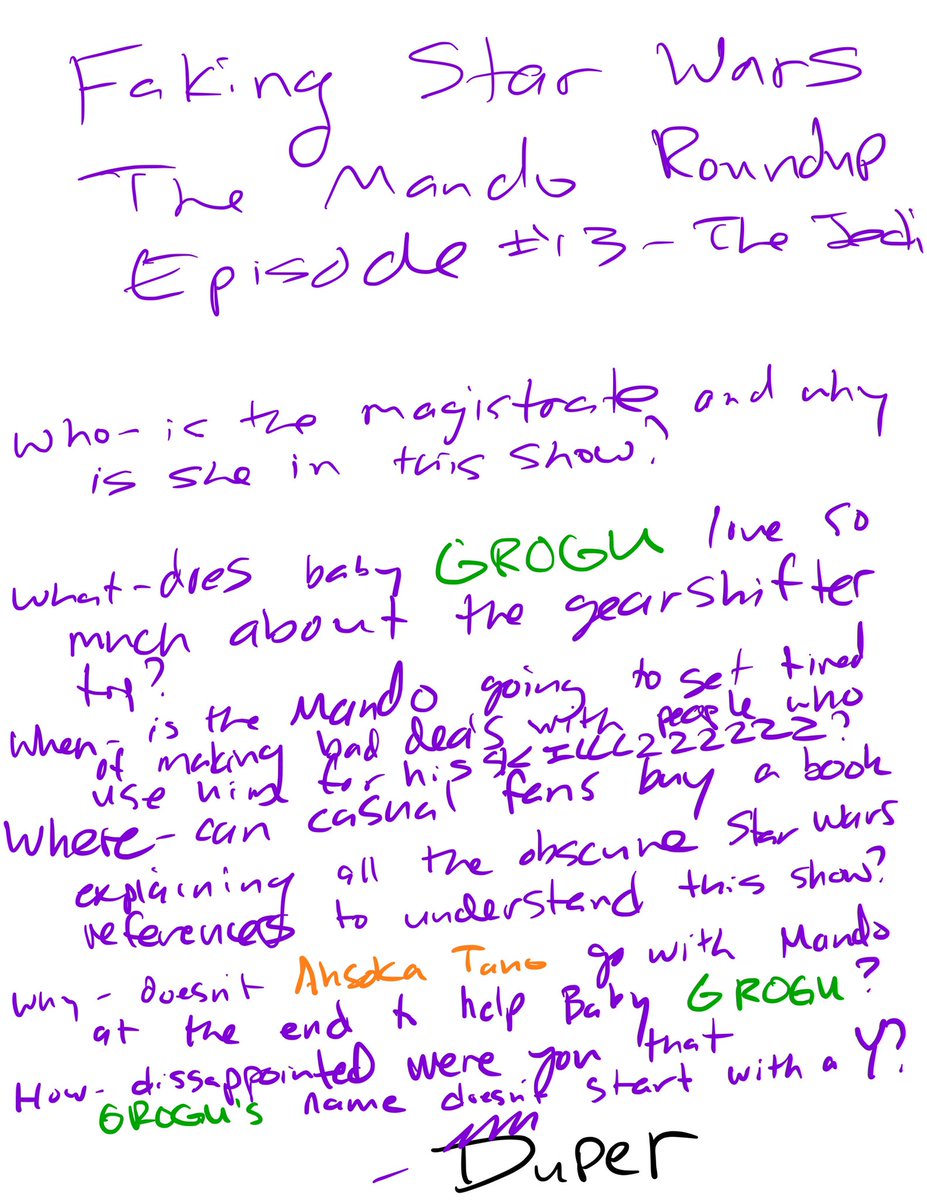 Faking Star Wars
The Mando Roundup
Episode #13 - The Jedi
Who - is the magistrate and why
is she in this show?
What - does baby GROGU love so
much about the gearshifter
toy?
When - is the Mando going to get tired
of making bad deals with people who
use him for his SKILLLZZZZZZ?
Where - can casual fans buy a book
explaining all the obscure Star Wars
references to understand this show?
Why - doesn't Ahsoka Tano go with Mando
at the end to help Baby GROGU?
How - dissappointed were you that
GROGU's name doesn't start with a Y?
- Duper